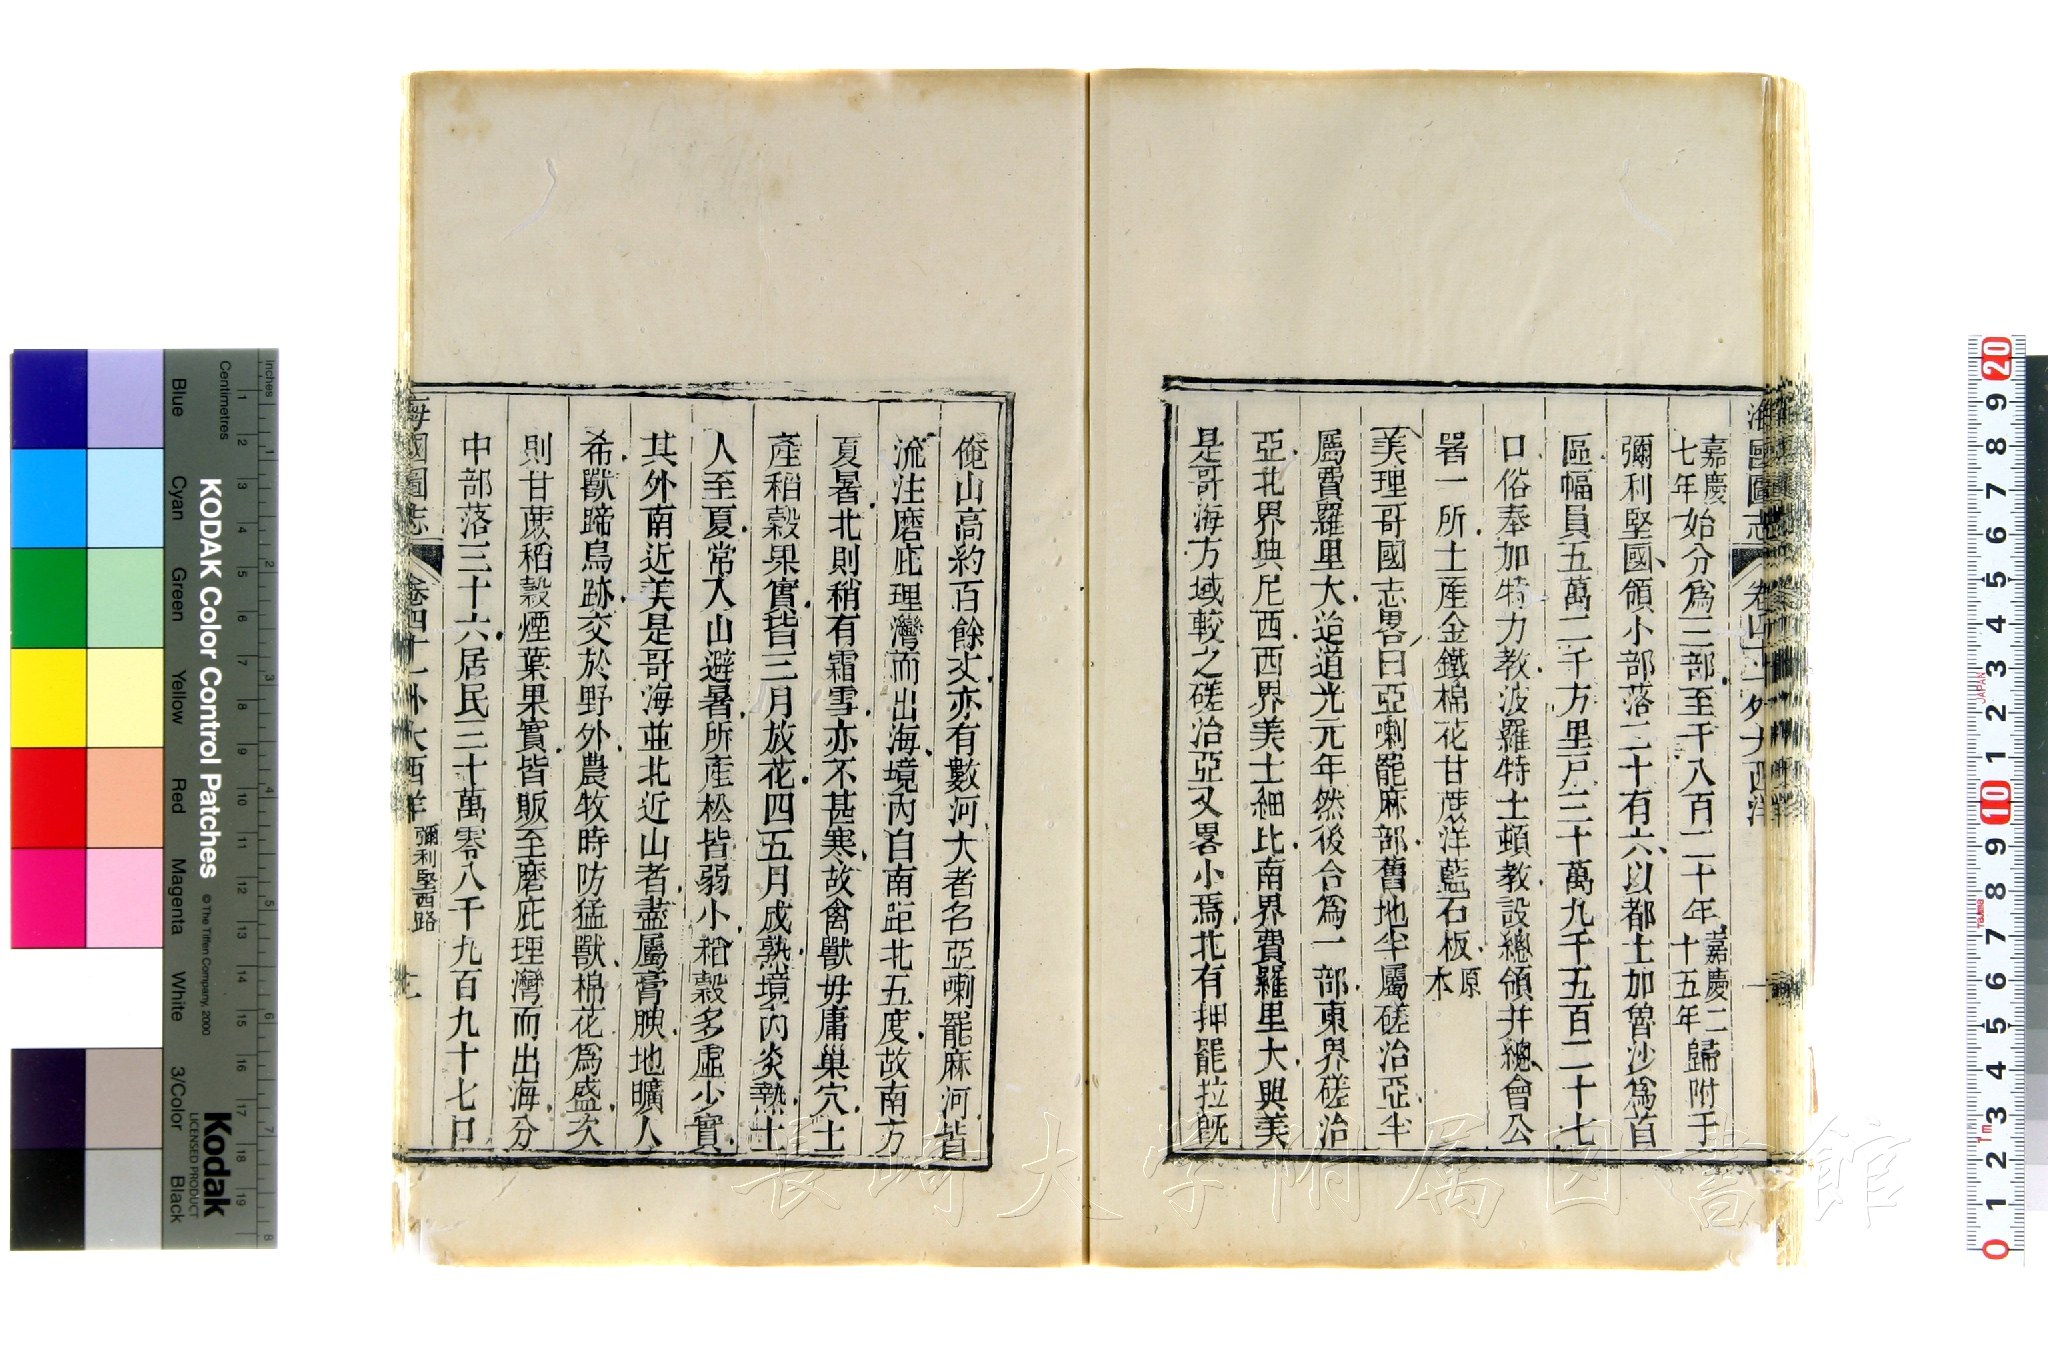 海國圖志 卷四十一 外大西洋
嘉慶七年始分爲三部至千八百二十年嘉慶二十五年歸附于
彌利堅國領小部落二十有六以都士加魯沙爲首
區幅員五萬二千方里戸三十萬九千五百二十七
口俗奉加特力教波羅特士頓教設總領并總會公
署一所土產金鐵棉花甘蔗洋藍石板原本
美理哥國志畧曰亞喇罷麻部舊地半屬磋治亞半
屬費羅里大迨道光元年然後合爲一部東界磋治
亞北界典尼西西界美士細比南界費羅里大與美
是哥海方域較之磋治亞又畧小焉北有押罷拉旣
俺山高約百餘丈亦有數河大者名亞喇罷麻河皆
流注磨庇理灣而出海境內自南距北五度故南方
夏暑北則稍有霜雪亦不甚寒故禽獸毋庸巢穴土
產稻穀果實皆三月放花四五月成熟境內炎熱土
人至夏常入山避暑所產松皆弱小稻穀多虛少實
其外南近美是哥海並北近山者盡屬膏腴地曠人
希獸蹄鳥跡交於野外農牧時防猛獸棉花爲盛次
則甘蔗稻穀煙葉果實皆販至磨庇理灣而出海分
中部落三十六居民三十萬零八千九百九十七口
海國圖志 卷四十一 外大西洋 彌利堅西路
長崎大学附属図書館
KODAK Color Control Patches © The Tiffen Company, 2000
Kodak LICENSED PRODUCT
inches
Centimetres
Blue Cyan Green Yellow Red Magenta White 3/Color Black
1 2 3 4 5 6 7 8
1 2 3 4 5 6 7 8 9 10 11 12 13 14 15 16 17 18 19
20 9 8 7 6 5 4 3 2 1 10 9 8 7 6 5 4 3 2 1 0
JAPAN